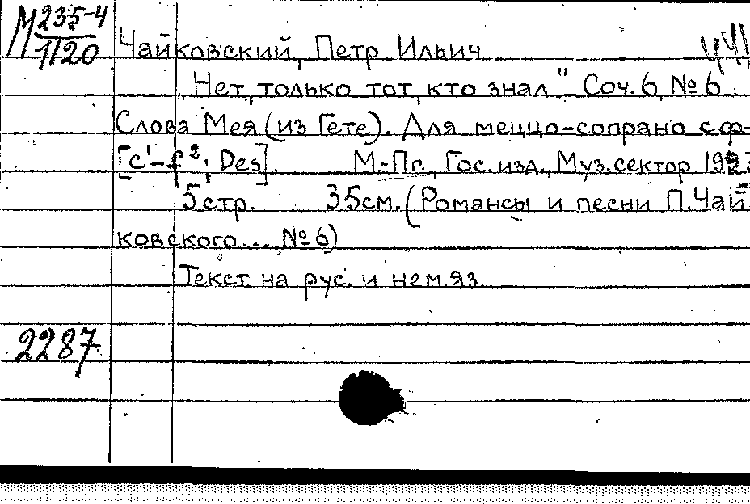 М 235-4
1120
Чайковский, Петр Ильич
"Нет, только тот, кто знал" Соч. 6, № 6
Слова Мея (из Гете). Для меццо-сопрано с ф-
[c¹-f²; Des] М.-Пг., Гос. изд., Муз. сектор
5 стр. 35 см. (Романсы и песни П. Чай-
ковского... № 6)
Текст на рус. и нем. яз.
2287